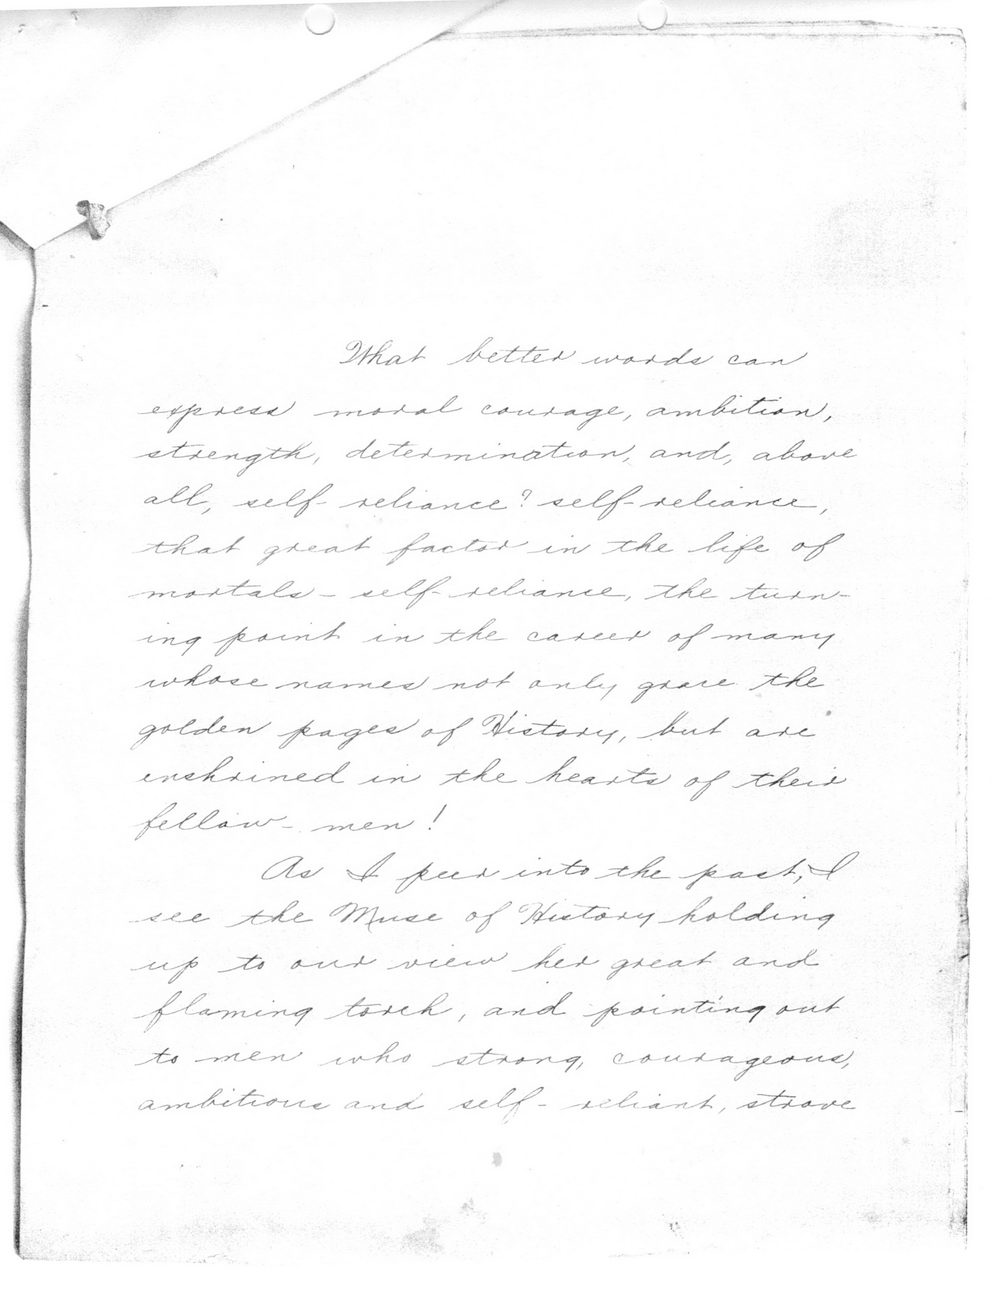 What better words can
express moral courage, ambition,
strength, determination, and, above
all, self-reliance? self-reliance,
that great factor in the life of
mortals - self-reliance, the turn-
ing point in the career of many
whose names not only grace the
golden pages of History, but are
enshrined in the hearts of their
fellow-men!
As I peer into the past, I
see the Muse of History holding
up to our view her great and
flaming torch, and pointing out
to men who strong, courageous,
ambitious and self-reliant, strove